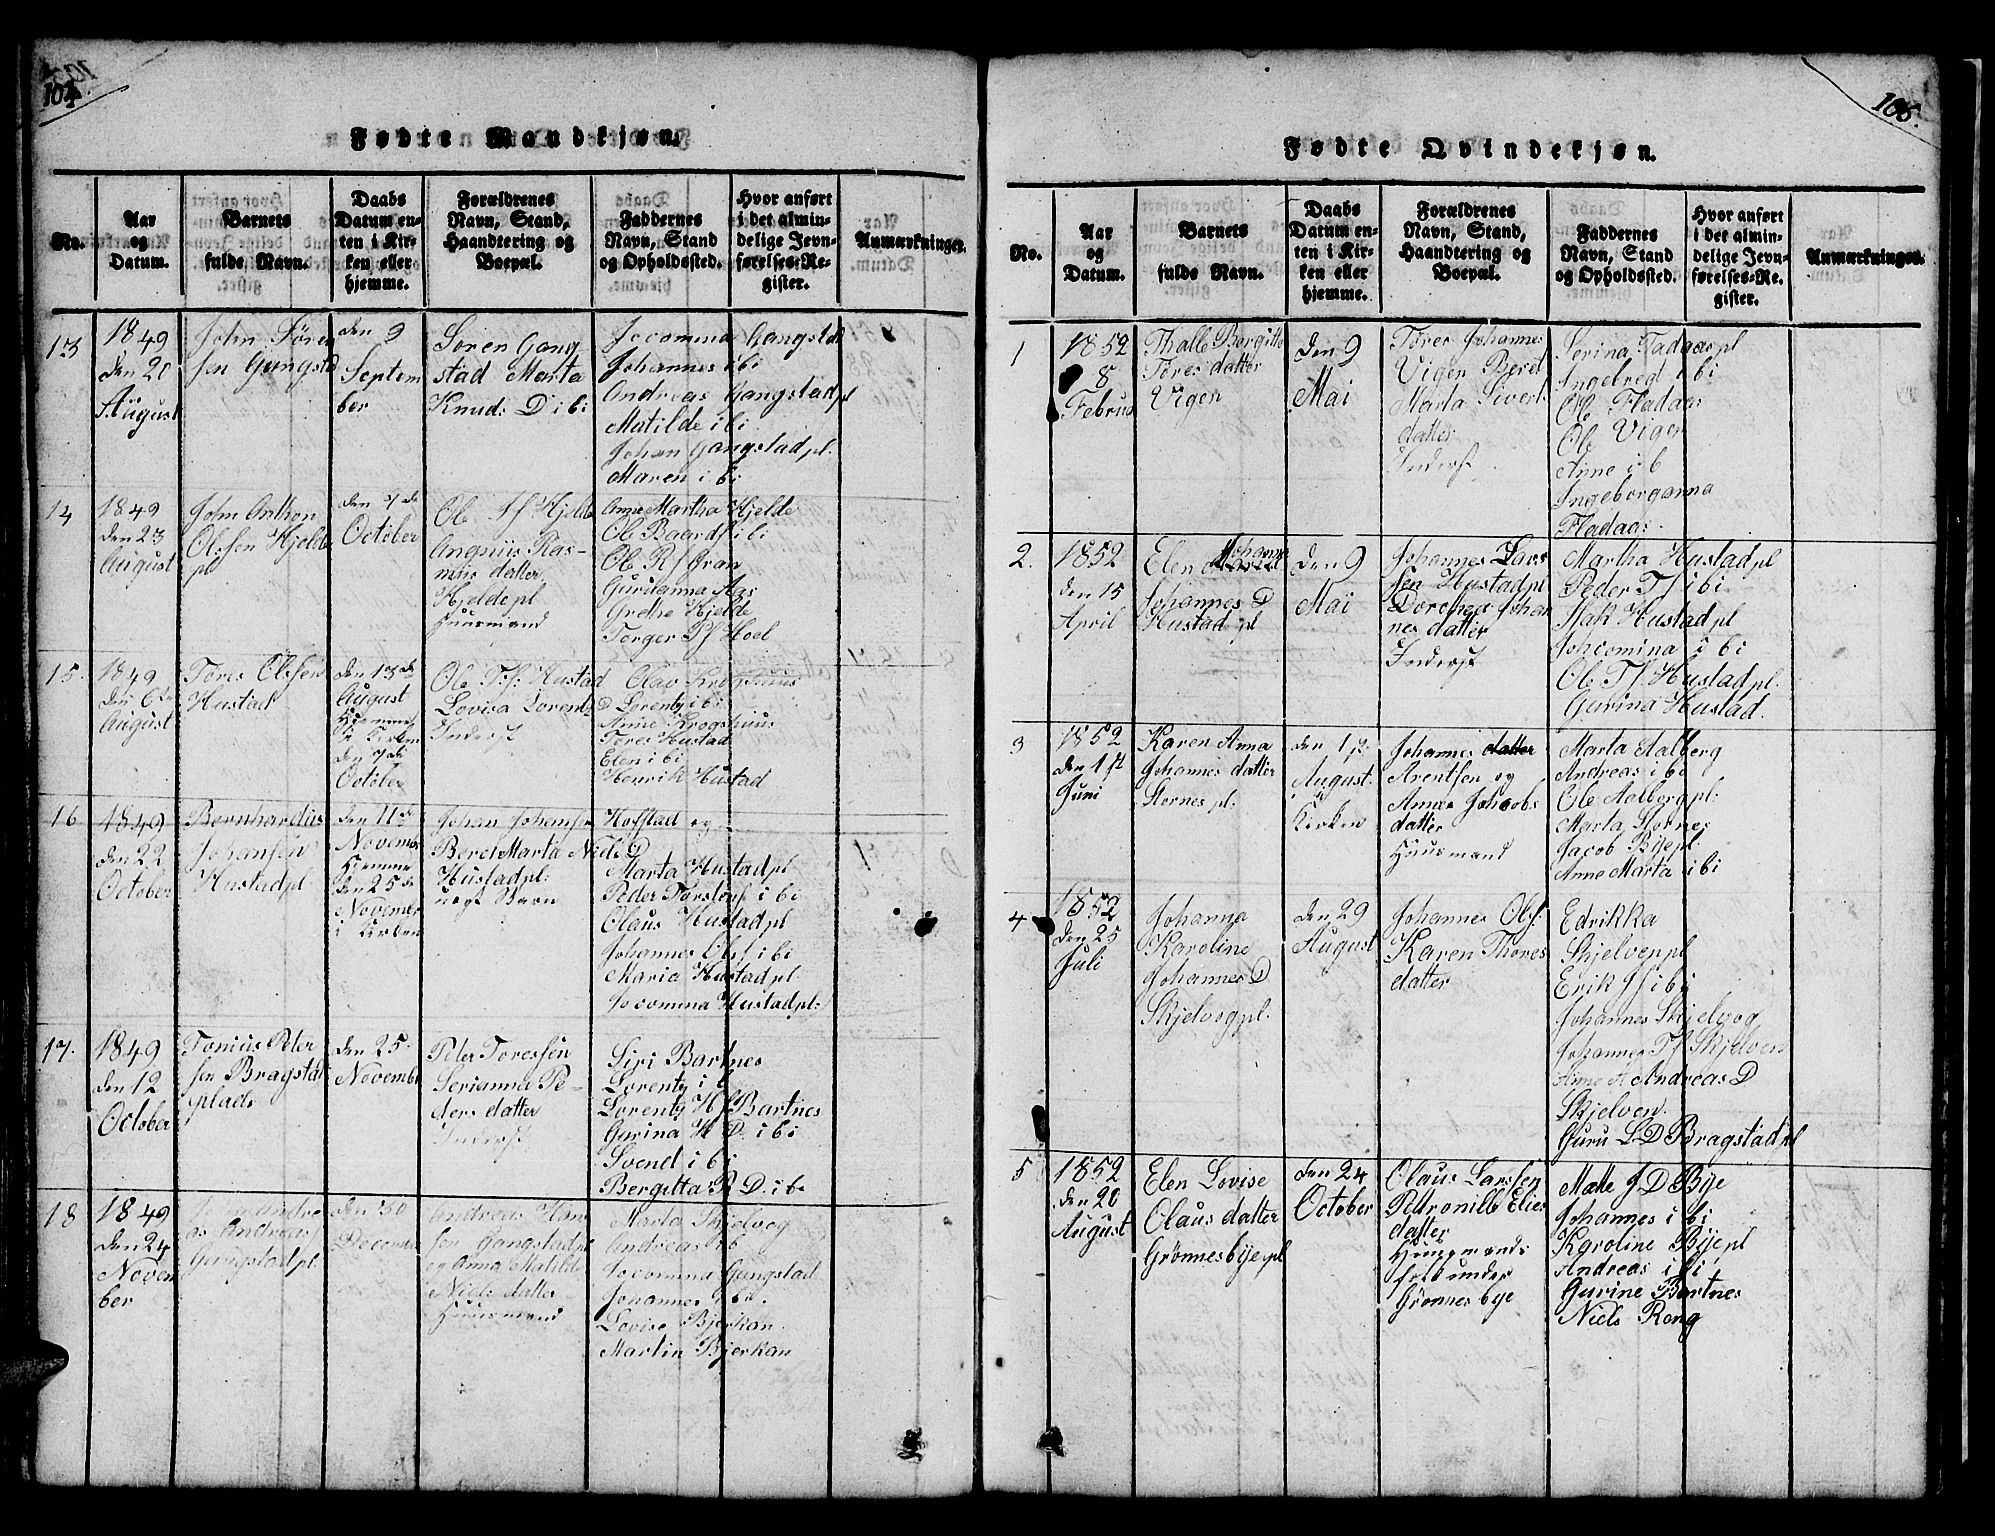 104
Fødte Mandkjøn.
No.
Aar
og
Datum.
Barnets
fulde Navn.
Daabs
Datum en-
ten i Kir-
ken eller
hjemme.
Forældrenes
Navn, Stand,
Haandtering og
Boepæl.
Faddernes
Navn, Stand
og Opholdssted.
Hvor anført
i det almin-
delige Jevn-
førelses-Re-
gister.
Anmærkninger.
13
1849
den 20
August
John Søren
sen Gangstad
den 9
Septem
ber
Søren Gang
stad Marta
Knuds D i bi
Jocomma Gangstad
Johannes i bi
Andreas Gangstadpl
Matilde i bi
Johan Gangstadpl.
Maren i bi
14
1849
den 23
August
John Anthon
Olssen Hjelde
pl
den 7de
October
Ole Hjelde
Rasmus
datter
Hjeldepl
Huusmand
Anne Martha Hjelde
Ole Baards i bi
Ole Rs Gran
Gurianna Aas
Grethe Hjelde
Torger Ps Hoel
15.
1849
den 6te
August
Tores Olssen
Hustad
den 13de
August
Hjemme
i Kirken
den 7de
October
Ole Ts: Hustad
Lovisa Lorents D
Inderst
Olav Krogshuus
Lorents i bi
Anne Krogshuus
Tores Hustad
Elen i bi
Henrik Hustad
16
1849
den 22
October
Bernhardus
Johansen
Hustadpl.
den 11te
November
Hjemme
den 25de
November
i Kirken
Johan Johansen Hofstad og
Beret Marta Niels D
Hustadpl:
uægt Barn
Marta Hustadpl
Peder Torstens i bi
Olaus Hustadpl
Johannes Ols i bi
Maria Hustadpl.
Jocomma Hustadpl:
17.
1849
den 12
October
Tonius Peter
sen Bragstad
plads
den 25
November
Peter Toressen
Serianna Pe-
ders datter
Inderst
Siri Bartnes
Lorents i bi
Lorents Hs Bartnes
Gurina H D. i bi
Svend i bi
Bergitta R D. i bi
18
1849
den 24
Novem
ber
Andre
as Andreas
Gangstadpl.
den 30
December
Andreas Han
sen Gangstadpl
og Anna Matilde
Niels datter
Huusmand
Marta Skjelvog
Andreas i b
Jocomma Gangstad
Johannes i bi.
Lovise Bjerkan
Martin Bjerkan
105.
Fødte Qvindekjøn.
No.
Aar
og
Datum.
Barnets
fulde Navn.
Daabs
Datum en-
ten i Kir-
ken eller
hjemme.
Forældrenes
Navn, Stand,
Haandtering og
Boepæl.
Faddernes
Navn, Stand
og Opholdssted.
Hvor anført
i det almin-
delige Jevn-
førelses-Re-
gister.
Anmærkninger.
1
1852
8
Februar
Thalle Bergitte
Tores datter
Viger
den 9
Mai
Tores Johannes
Viger Beret
Marta Siverts
datter
Inderst
Serina Fladaaspl
Ingebregt i bi
Ole Fladaas
Ole Viger
Anne i b
Ingeborganna
Fladaas.
2.
1852
den 15
April
Elen Johanna
Johannes D
Hustad pl
den 9
Mai
Johannes Lars
sen Hustadpl
Dorthea Johan
nes datter
Inderst
Martha Hustadpl
Peder Ts i bi
Isak Hustadpl
Johcomina i bi
Ole Ts. Hustadpl.
Gurina Hustad.
3
1852
den 1st
Juni
Karen Anna
Johannes datter
Stornes pl.
den 1st.
August
i
Kirken
Johannes datter
Arentsen og
Anna Jahcobs
datter
Huusmand
Marta Aalberg
Andreas i bi
Ole Aalbergpl:
Marta Stornes
Jacob Byepl.
Anne Marta i bi
4
1852
den 25
Juli
Johanna
Karoline
Johannes D
Skjelvogpl.
den 29
August
Johannes Ols:
Karen Thores
datter
Edrikka
Skjelvenpl
Erik Js i bi
Johannes Skjelvog
Johannes Ts Skjelven
Anne A Andreas D
Skjelven.
Guru L D Bragstadpl
5
1852
den 20
August
Elen Lovise
Olaus datter
Grønnesbyepl
den 24
October
Olaus Larsen
Petronille Elies
datter
Huusmands
folk under
Grønnesbye
Mette J. D Bye
Johannes i bi
Karoline Byepl
Andreas i bi
Gurine Bartnes
Niels Rong